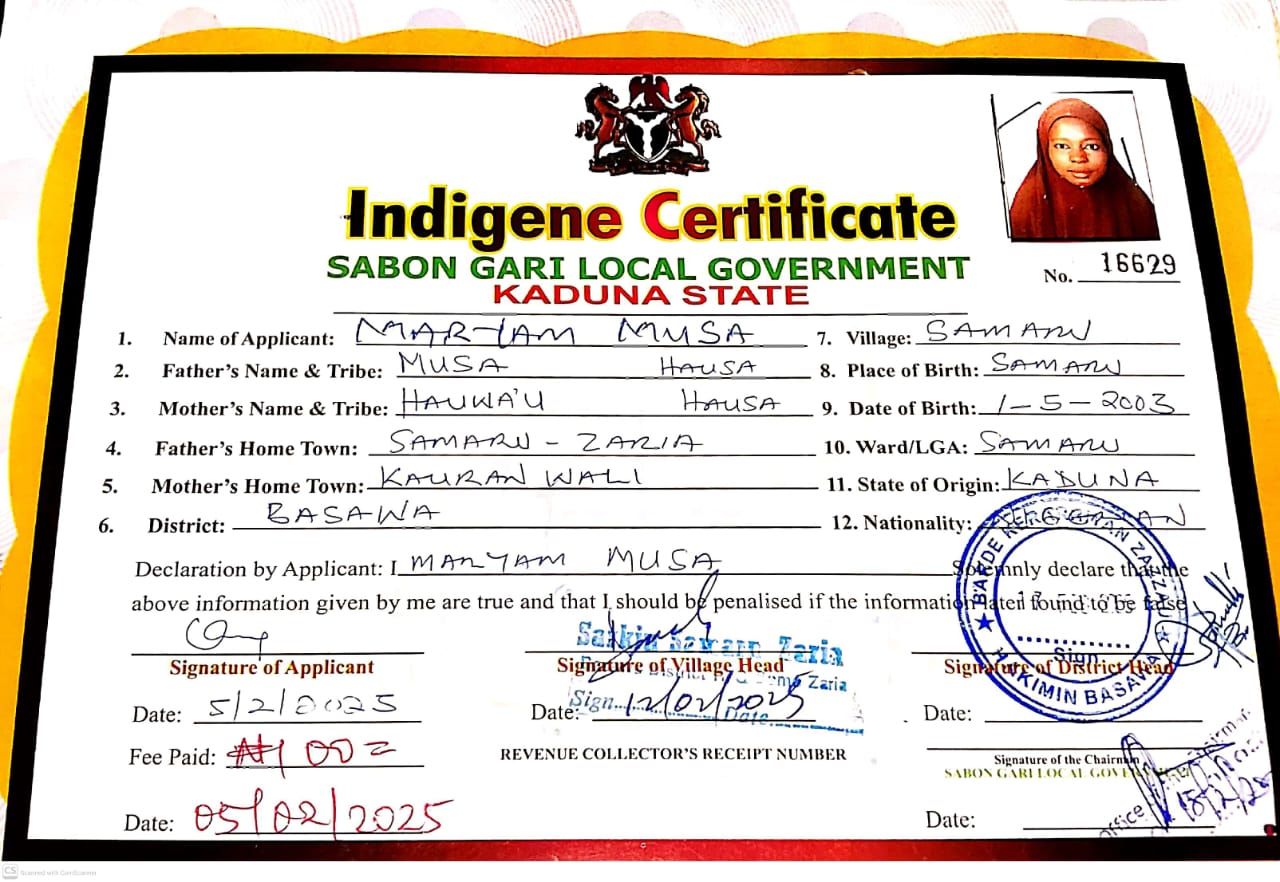 Indigene Certificate
SABON GARI LOCAL GOVERNMENT
KADUNA STATE
No. 16629
1. Name of Applicant: MARYAM MUSA
7. Village: SAMARU
2. Father's Name & Tribe: MUSA HAUSA
8. Place of Birth: SAMARU
3. Mother's Name & Tribe: HAUWA'U HAUSA
9. Date of Birth: 1-5-2003
4. Father's Home Town: SAMARU - ZARIA
10. Ward/LGA: SAMARU
5. Mother's Home Town: KAURAN WALI
11. State of Origin: KADUNA
6. District: BASAWA
12. Nationality:
Declaration by Applicant: I MARYAM MUSA Solemnly declare that the
above information given by me are true and that I should be penalised if the information later found to be false
Signature of Applicant
Signature of Village Head
Signature of District Head
Sarkin Samaru Zaria
Zaria
Sign
Date
ZAZZAU
HAKIMIN BASAWA
Sign
Date: 5/2/2025
Date: 12/02/2025
Date:
Fee Paid: ₦100=
REVENUE COLLECTOR'S RECEIPT NUMBER
Signature of the Chairman
SABON GARI LOCAL
Office
Date: 05/02/2025
Date:
CS Scanned with CamScanner